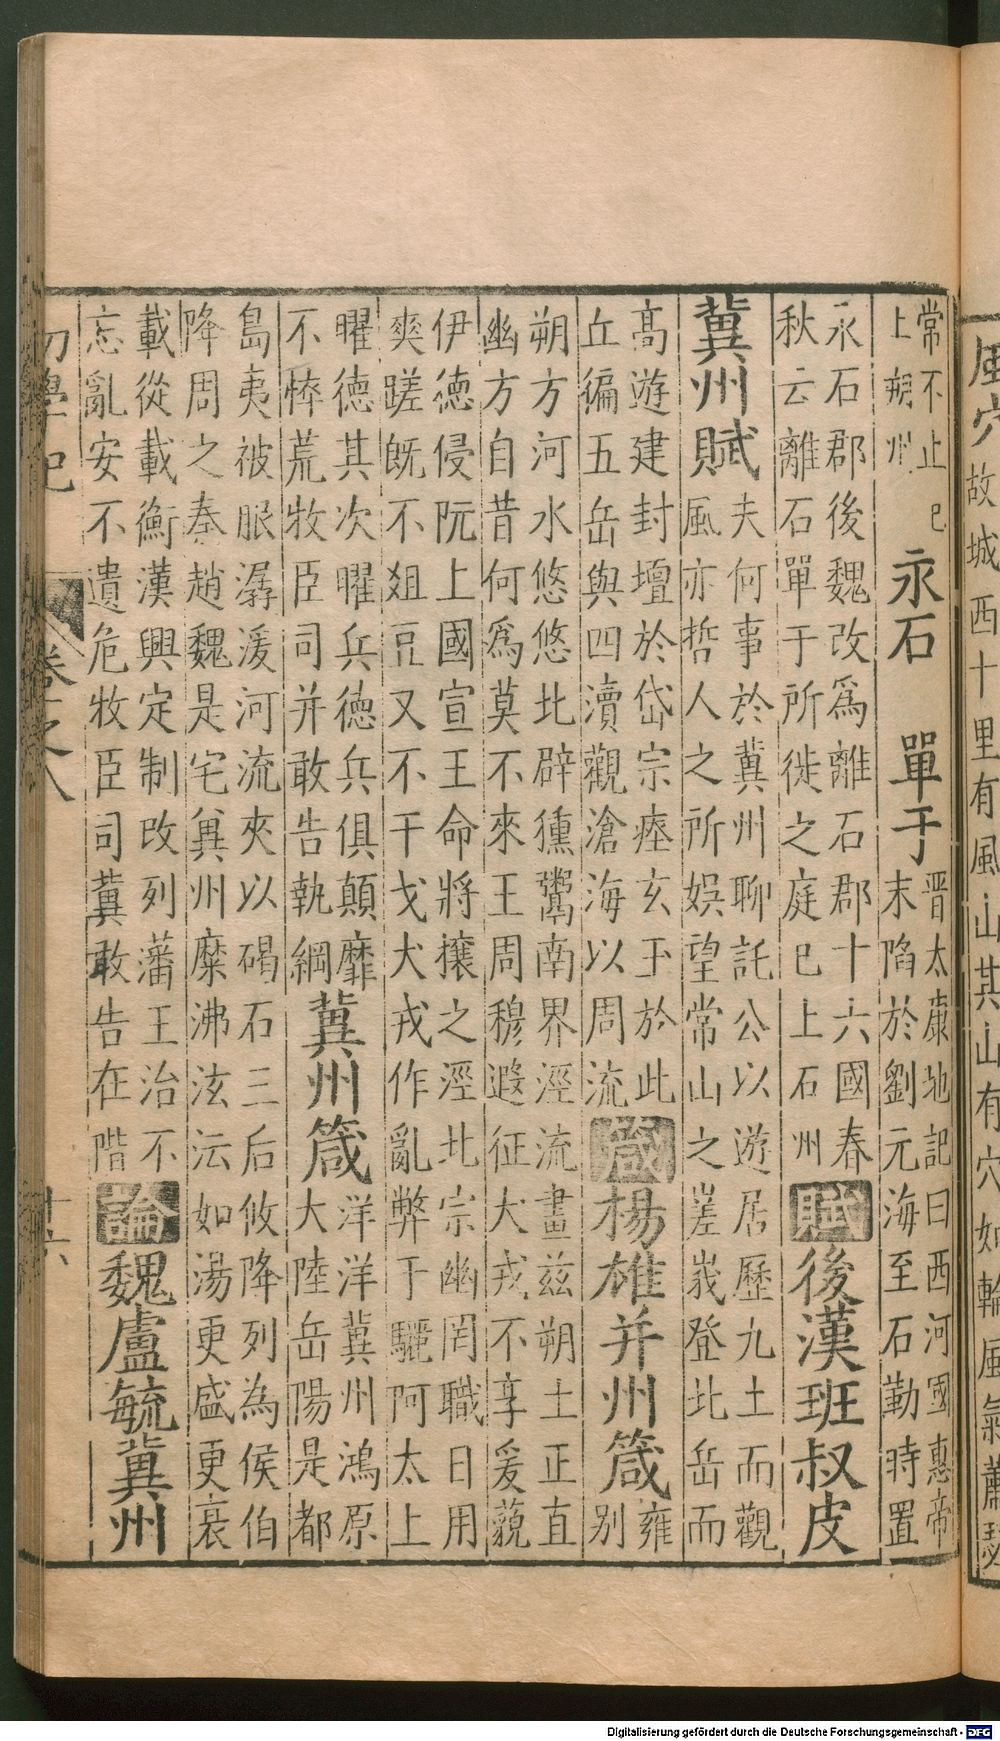 風穴故城西十里有風山其山有穴如輪風氣蕭瑟
常不止已
上朔州
永石
單于
晉太康地記曰西河國惠帝
末陷於劉元海至石勤時置
永石郡後魏改爲離石郡十六國春
秋云離石單于所徙之庭已上石州
賦
後漢班叔皮
冀州賦
夫何事於冀州聊託公以遊居歷九土而觀
風亦哲人之所娛望常山之嵳峩登北岳而
高遊建封壇於岱宗瘞玄玉於此
丘徧五岳與四瀆觀滄海以周流
箴
楊雄并州箴
雍
別
朔方河水悠悠北辟獯鬻南界涇流畫茲朔土正直
幽方自昔何爲莫不來王周穆遐征犬戎不享爰藐
伊德侵阮上國宣王命將攘之涇北宗幽罔職日用
爽蹉旣不俎豆又不干戈犬戎作亂弊于驪阿太上
曜德其次曜兵德兵俱顛靡
不悴荒牧臣司并敢告執綱
冀州箴
洋洋冀州鴻原
大陸岳陽是都
島夷被服潺湲河流夾以碣石三后攸降列為侯伯
降周之泰趙魏是宅兾州糜沸泫沄如湯更盛更衰
載從載衡漢興定制改列藩王治不
忘亂安不遺危牧臣司冀敢告在階
論
魏盧毓冀州
初學記
卷之八
十六
Digitalisierung gefördert durch die Deutsche Forschungsgemeinschaft - DFG